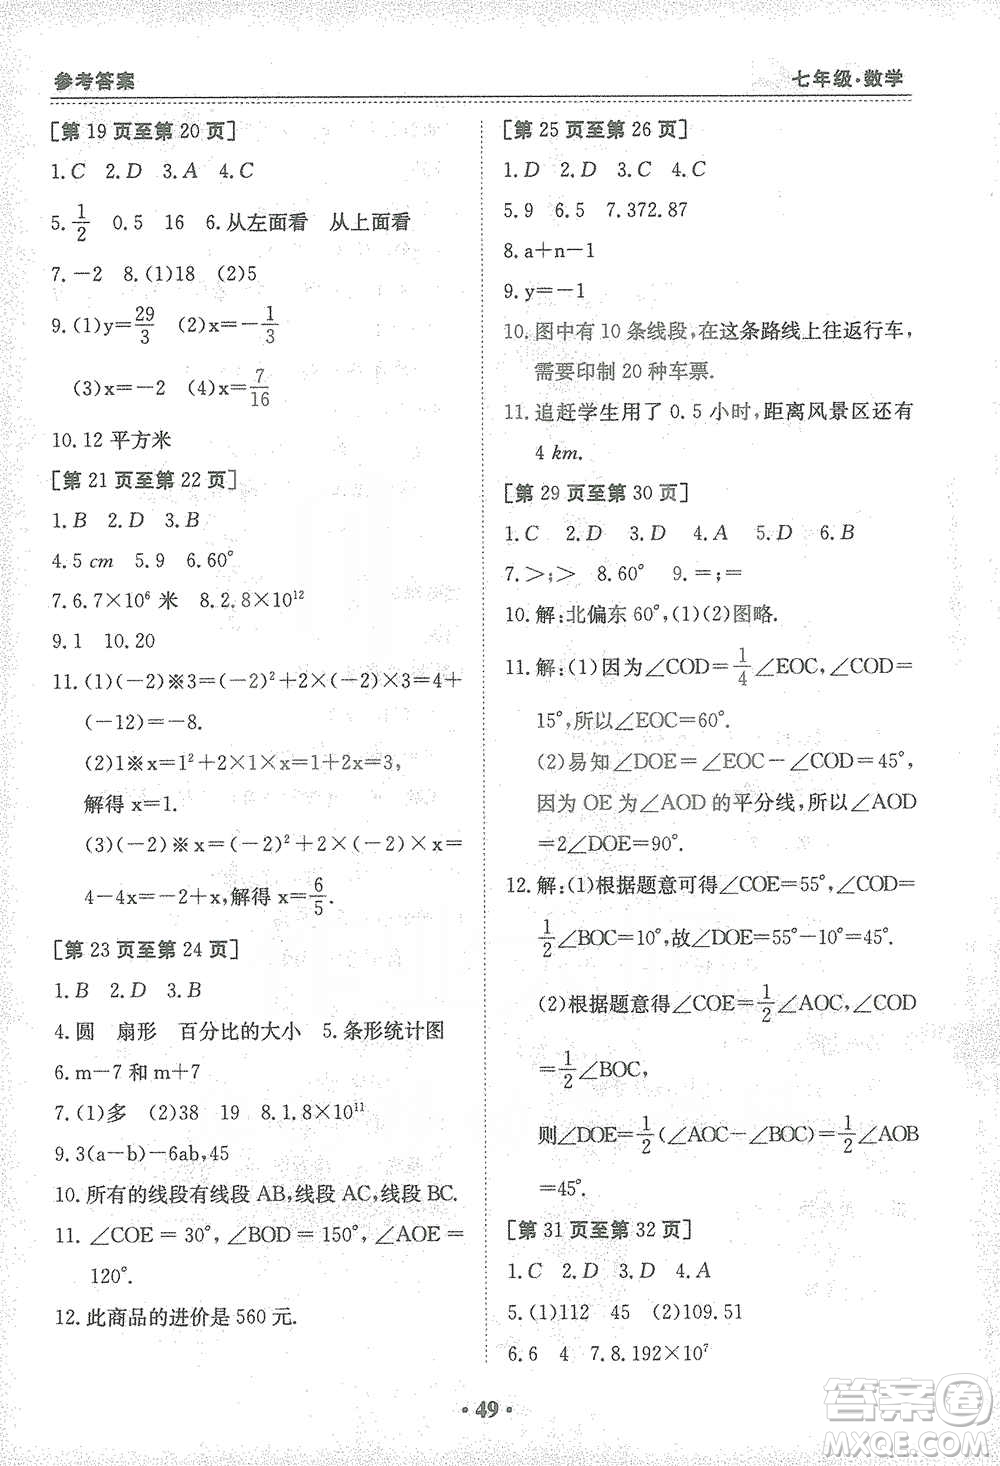 参考答案
七年级·数学
[第 19 页至第 20 页]
1.C 2.D 3.A 4.C
5.1/2 0.5 16 6.从左面看 从上面看
7.－2 8.(1)18 (2)5
9.(1)y＝29/3 (2)x＝－1/3
(3)x＝－2 (4)x＝7/16
10.12 平方米
[第 21 页至第 22 页]
1.B 2.D 3.B
4.5 cm 5.9 6.60°
7.6.7×10⁶ 米 8.2.8×10¹²
9.1 10.20
11.(1)(－2)※3＝(－2)²＋2×(－2)×3＝4＋
(－12)＝－8.
(2)1※x＝1²＋2×1×x＝3,
解得 x＝1.
(3)(－2)※x＝(－2)²＋2×(－2)×x＝
4－4x＝－2＋x,解得 x＝6/5.
[第 23 页至第 24 页]
1.B 2.D 3.B
4.圆 扇形 百分比的大小 5.条形统计图
6.m－7 和 m＋7
7.(1)多 (2)38 19 8.1.8×10¹¹
9.3(a－b)－6ab,45
10.所有的线段有线段 AB,线段 AC,线段 BC.
11.∠COE＝30°,∠BOD＝150°,∠AOE＝
120°.
12.此商品的进价是 560 元.
[第 25 页至第 26 页]
1.C 2.D 3.B 4.C
5.9 6.5 7.372.87
8.a＋n－1
9.y＝－1
10.图中有 10 条线段,在这条路线上往返行车,
需要印制 20 种车票.
11.追赶学生用了 0.5 小时,距离风景区还有
4 km.
[第 29 页至第 30 页]
1.C 2.D 3.D 4.A 5.D 6.B
7.＞;＞ 8.60° 9.＝;＝
10.解:北偏东 60°,(1)(2)图略.
11.解:(1)因为∠COD＝1/4∠EOC,∠COD＝
15°,所以∠EOC＝60°.
(2)易知∠DOE＝∠EOC－∠COD＝45°,
因为 OE 为∠AOD 的平分线,所以∠AOD
＝2∠DOE＝90°.
12.解:(1)根据题意可得∠COE＝55°,∠COD＝
1/2∠BOC＝10°,故∠DOE＝55°－10°＝45°.
(2)根据题意得∠COE＝1/2∠AOC,∠COD
＝1/2∠BOC,
则∠DOE＝1/2(∠AOC－∠BOC)＝1/2∠AOB
＝45°.
[第 31 页至第 32 页]
1.C 2.D 3.D 4.A
5.(1)112 45 (2)109.51
6.6 4 7.8.192×10⁷
·49·
答案圈
MXQE.COM